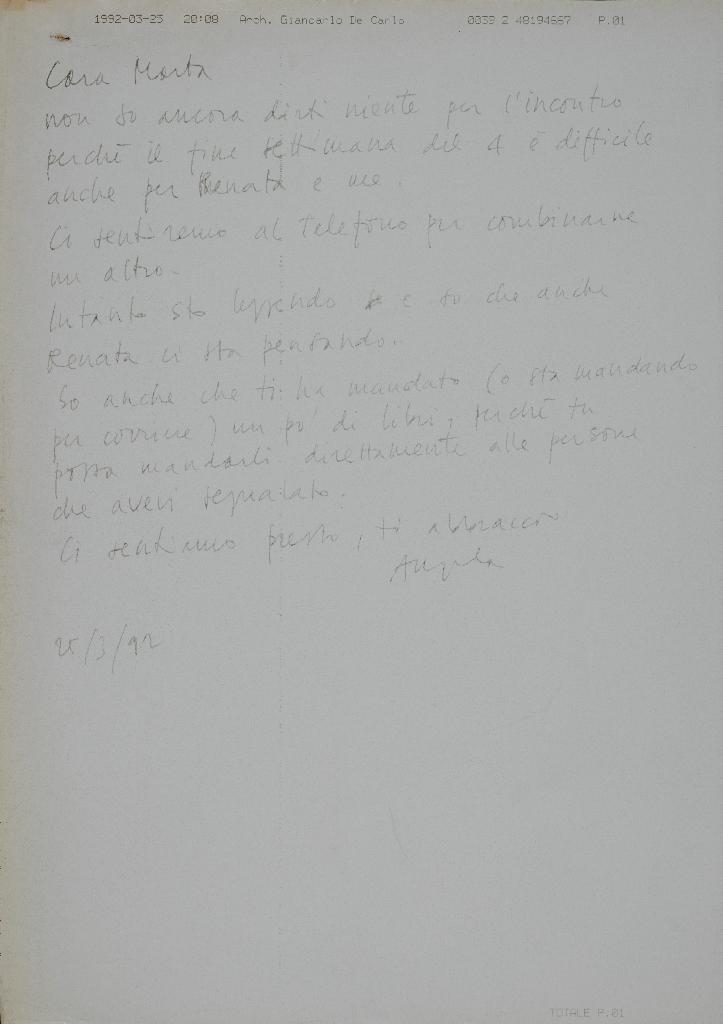 1992-03-25 20:08 Arch. Giancarlo De Carlo 0039 2 48194667 P.01
Cara Marta
non so ancora dirti niente per l'incontro
perché il fine settimana del 4 è difficile
anche per Renata e me.
Ci sentiremo al telefono per combinarne
un altro.
Intanto sto leggendo e so che anche
Renata ci sta pensando.
So anche che ti ha mandato (o sta mandando
per corriere) un po' di libri, perché tu
possa mandarli direttamente alle persone
che avevi segnalato.
Ci sentiamo presto, ti abbraccio
Angela
25/3/92
TOTALE P.01